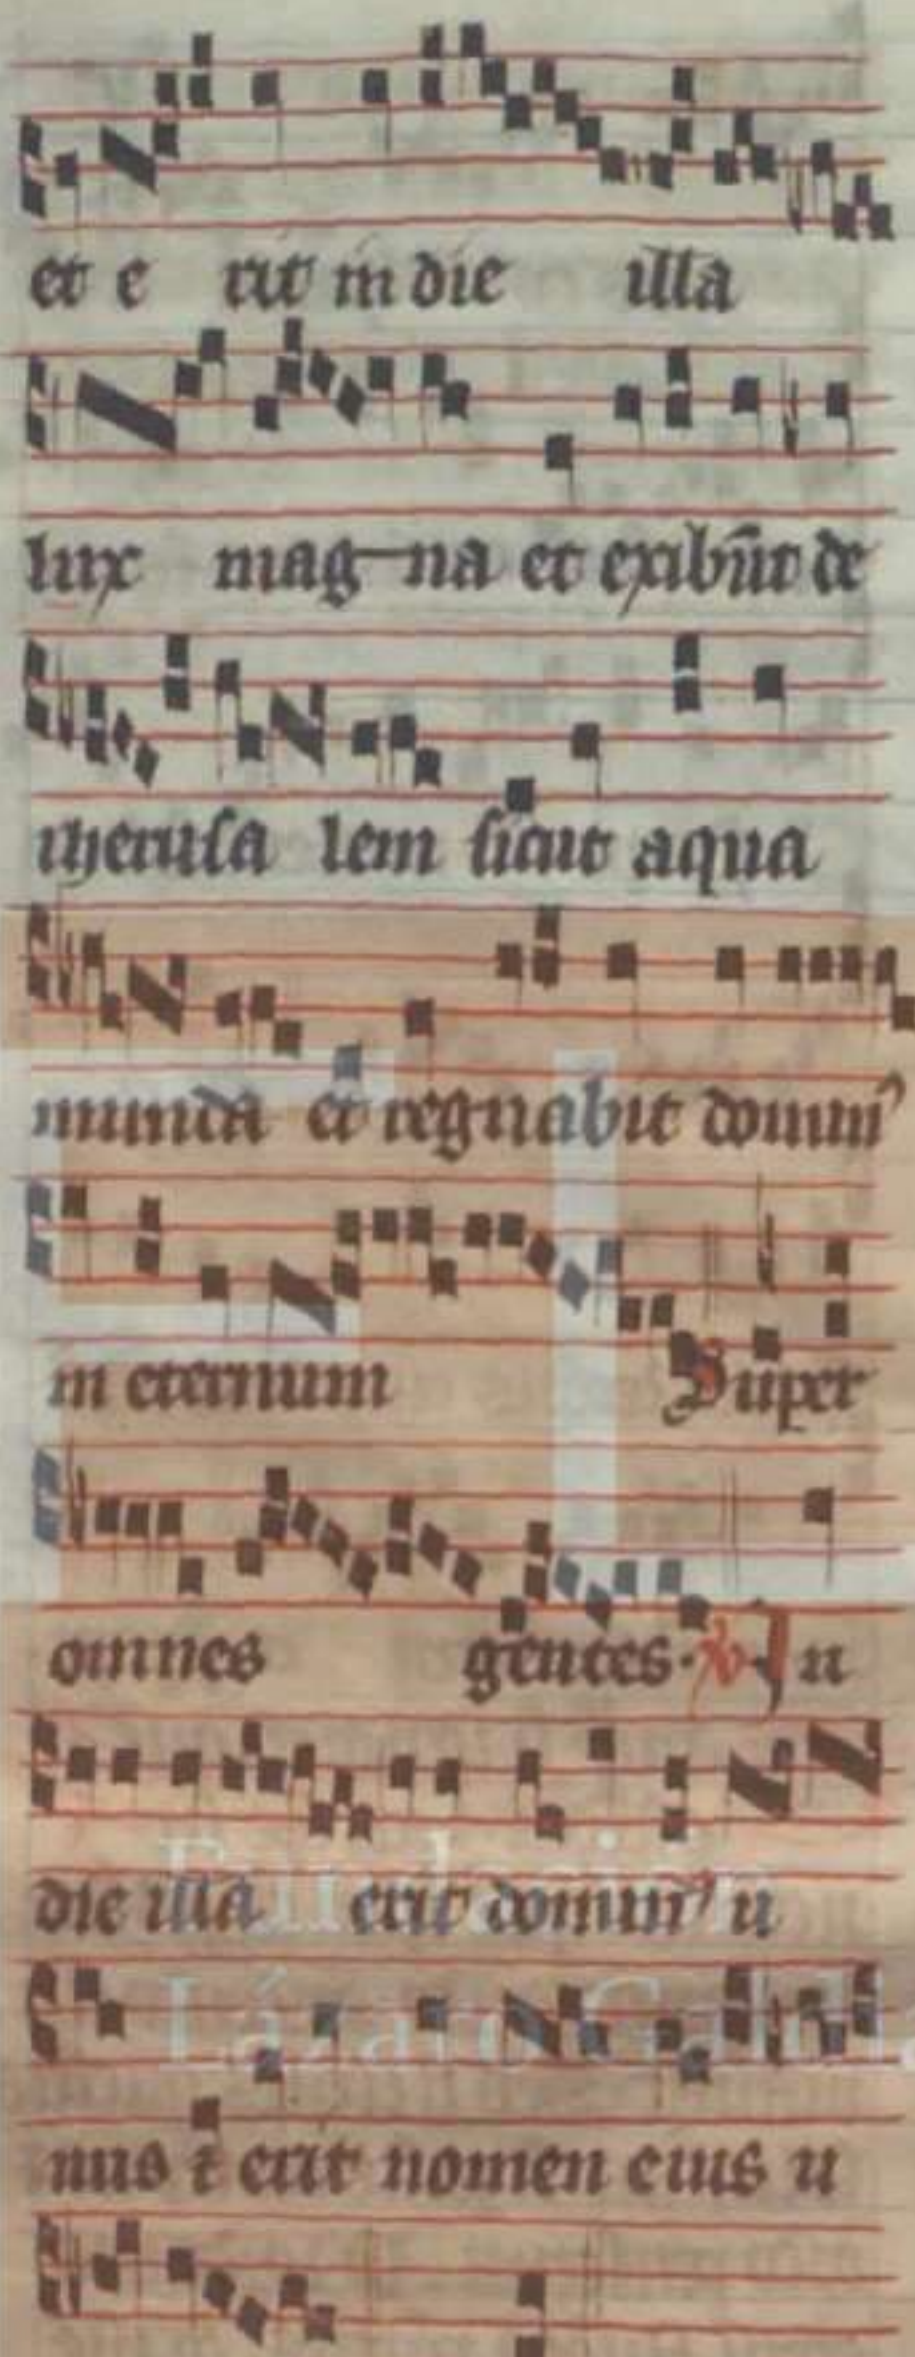 et e rit in die illa
lux mag-na et exibūt de
iherusa lem sicut aqua
munda et regnabit domin᾿
in eternum Super
omnes gentes. V In
die illa erit domin᾿ u
nus ⁊ erit nomen eius u
Fundación
Lázaro Galdia